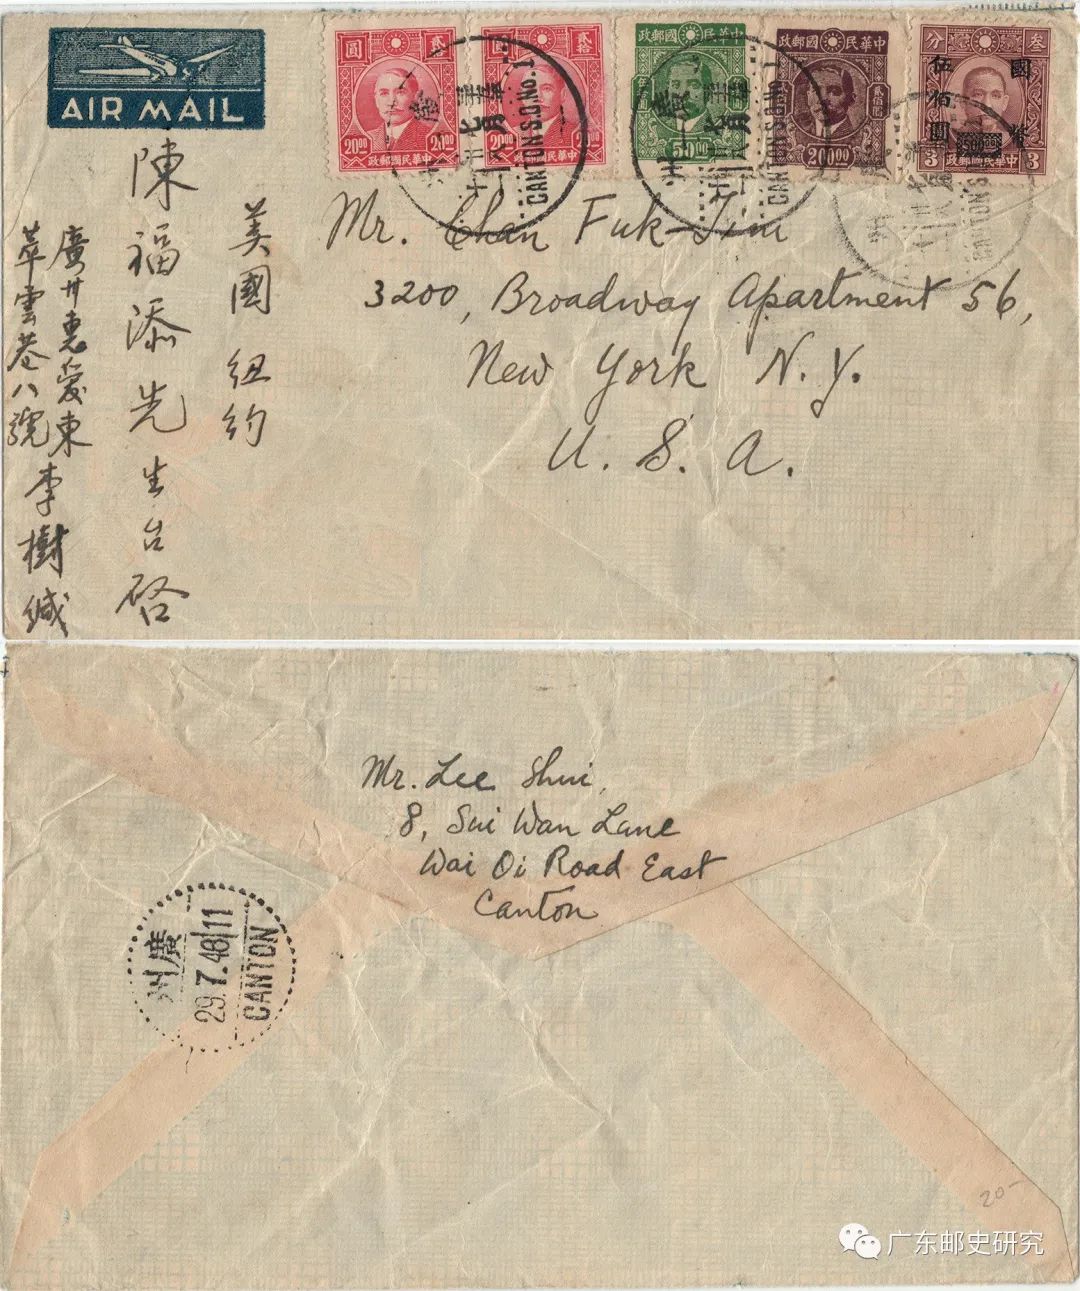 AIR MAIL
圓 貳
20.00 20.00
政郵國民華中
20.00 20.00
政郵國民華中
政郵國民華中
50.00
政郵國民華中
200.00
分 叁
國 幣
伍佰圓
500.00
3 政郵國民華中 3
CANTON S.O.No.1
CANTON S.O.No.1
CANTON S.O.
Mr. Chan Fuk-Tim
3200, Broadway Apartment 56,
New York N.Y.
U. S. A.
美國 紐約
陳福添先生台啓
廣州惠愛東
萃雲巷八號
李樹緘
Mr. Lee Shui,
8, Sui Wan Lane
Wai Oi Road East
Canton
廣州
29.7.48|11
CANTON
20-
广东邮史研究